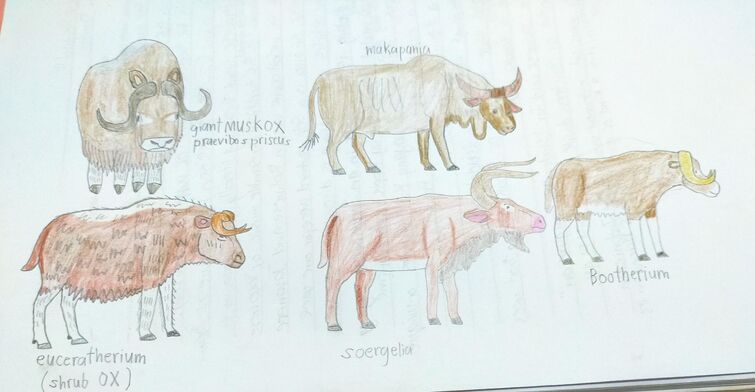 makapania
giant MUSKOX
praevibos priscus
Bootherium
euceratherium
(shrub OX)
soergelia